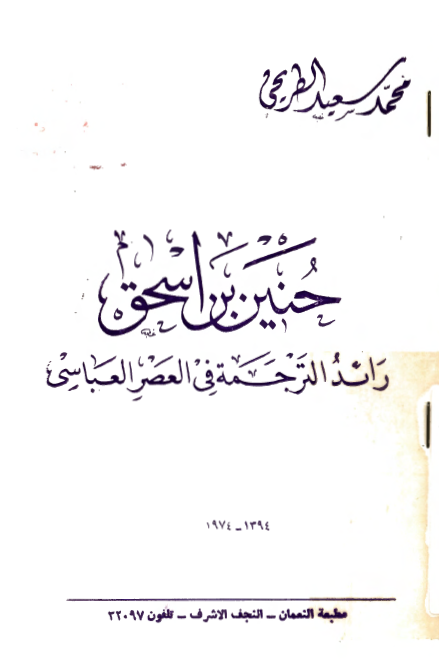 محمد سعيد الطريحي
حُنَيْن بَن اسْحق
رَائدُ التَرجَمَة فِي العَصْرِ العَبَاسِي
١٣٩٤ - ١٩٧٤
مطبعة النعمان - النجف الاشرف - تلفون ٣٢٠٩٧